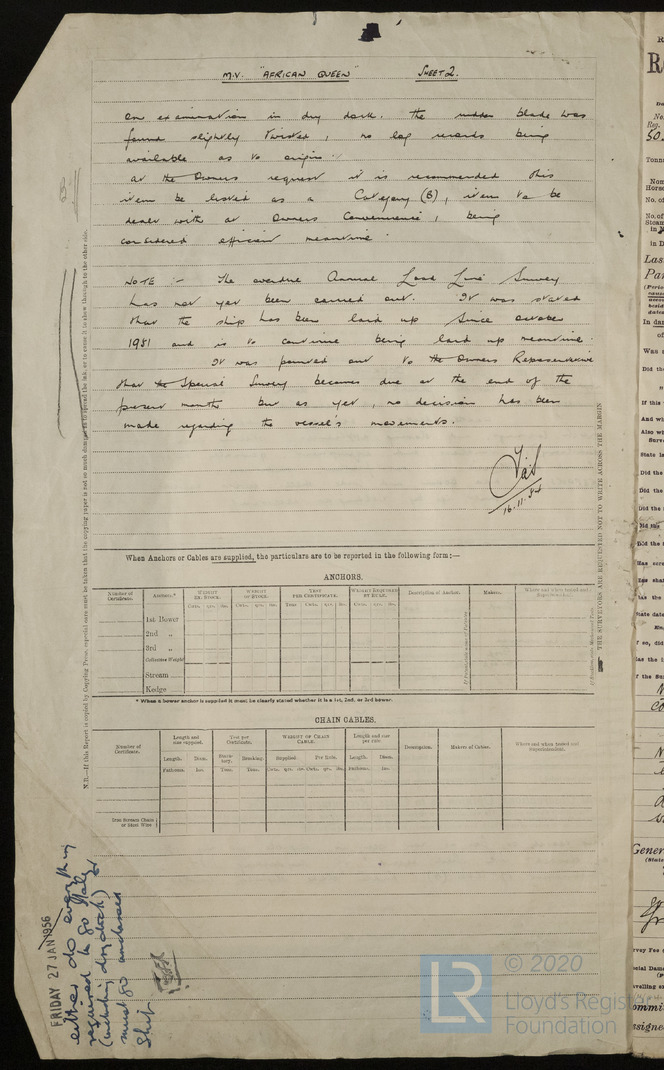 M.V. "AFRICAN QUEEN" SHEET 2.
on examination in dry dock. The rudder blade was
found slightly twisted, no log records being
available as to origin.
At the Owners request it is recommended this
item be listed as a Category (B), item to be
dealt with at Owners Convenience, being
considered efficient meantime.
NOTE :- The overdue Annual Load Line Survey
has not yet been carried out. It was stated
that the ship has been laid up since October
1951 and is to continue being laid up meantime.
It was pointed out to the Owners Representative
that the Special Survey becomes due at the end of the
present month but as yet, no decision has been
made regarding the vessel's movements.
16.11.54
When Anchors or Cables are supplied, the particulars are to be reported in the following form:—
ANCHORS.
Number of Certificate. Anchors.* WEIGHT EX. STOCK. WEIGHT OF STOCK. TEST PER CERTIFICATE. WEIGHT REQUIRED BY RULE. Description of Anchor. Makers. Where and when tested and Superintendent.
1st Bower
2nd „
3rd „
Collective Weight
Stream
Kedge
* When a bower anchor is supplied it must be clearly stated whether it is a 1st, 2nd, or 3rd bower.
CHAIN CABLES.
Number of Certificate. Length and size supplied. Test per Certificate. WEIGHT OF CHAIN CABLE. Length and size per rule. Description. Makers of Cables. Where and when tested and Superintendent.
Length. Diam. Statutory. Breaking. Supplied. Per Rule. Length. Diam.
Fathoms. Ins. Tons. Tons. Cwts. qrs. lbs. Cwts. qrs. lbs. Fathoms. Ins.
Iron Stream Chain or Steel Wire
THE SURVEYORS ARE REQUESTED NOT TO WRITE ACROSS THE MARGIN
FRIDAY 27 JAN 1956
either do everything
required to go
(including dry dock)
must go
Ship
LR
© 2020
Lloyd's Register
Foundation